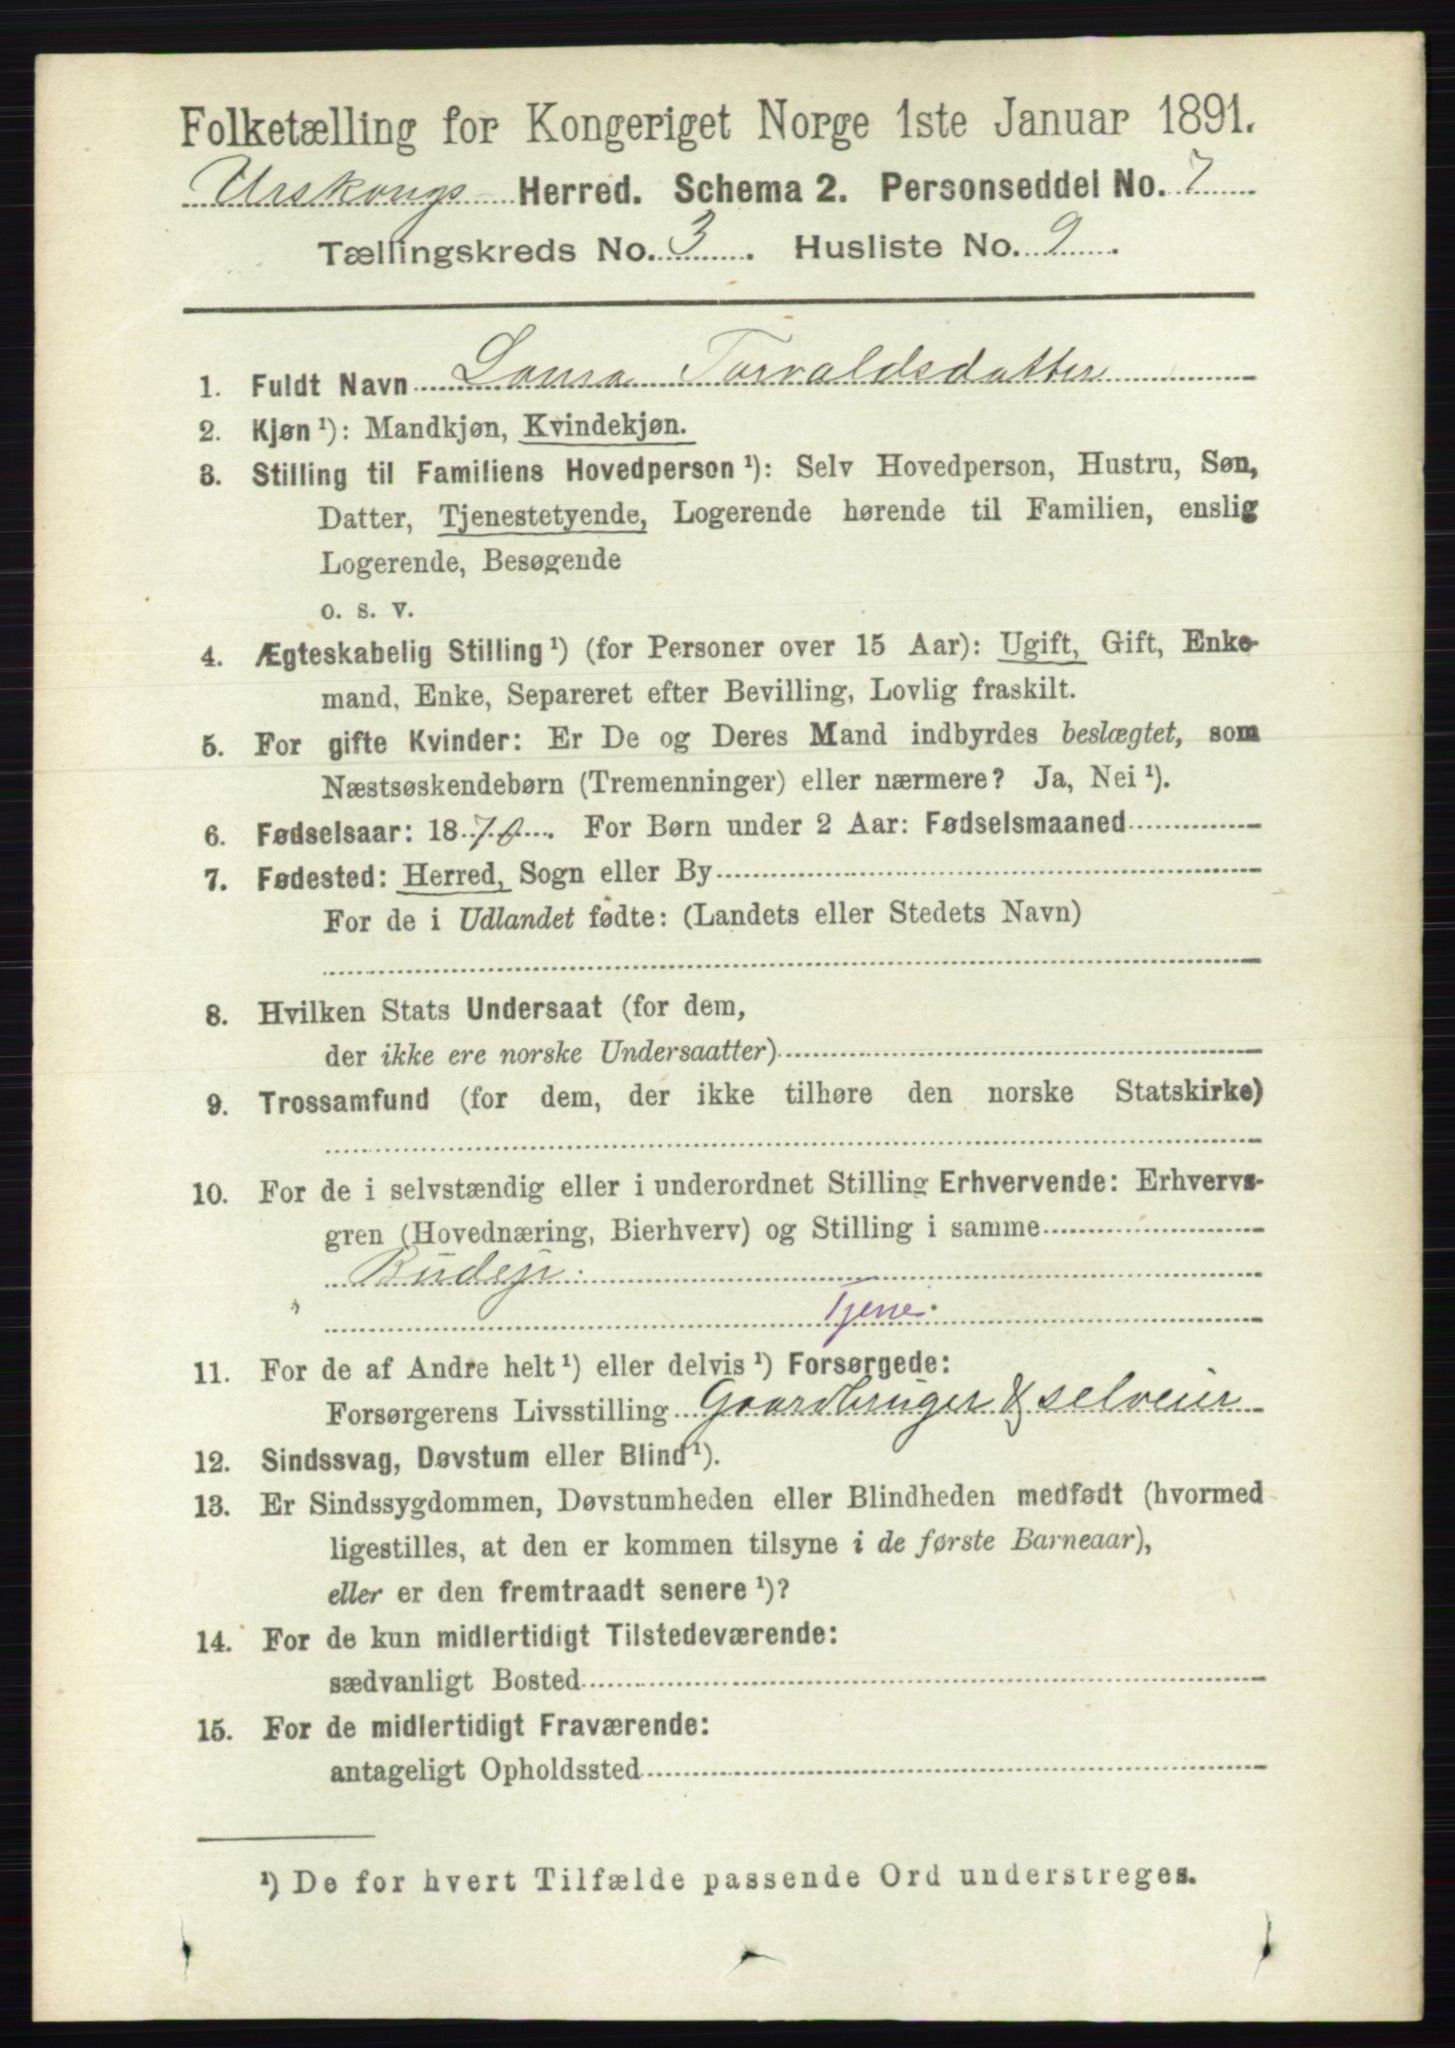 Folketælling for Kongeriget Norge 1ste Januar 1891.
Urskougs Herred. Schema 2. Personseddel No. 7
Tællingskreds No. 3. Husliste No. 9.
1. Fuldt Navn Laura Torvaldsdatter
2. Kjøn ¹): Mandkjøn, Kvindekjøn.
3. Stilling til Familiens Hovedperson ¹): Selv Hovedperson, Hustru, Søn,
Datter, Tjenestetyende, Logerende hørende til Familien, enslig
Logerende, Besøgende
o. s. v.
4. Ægteskabelig Stilling ¹) (for Personer over 15 Aar): Ugift, Gift, Enke-
mand, Enke, Separeret efter Bevilling, Lovlig fraskilt.
5. For gifte Kvinder: Er De og Deres Mand indbyrdes beslægtet, som
Næstsøskendebørn (Tremenninger) eller nærmere? Ja, Nei ¹).
6. Fødselsaar: 1870. For Børn under 2 Aar: Fødselsmaaned
7. Fødested: Herred, Sogn eller By
For de i Udlandet fødte: (Landets eller Stedets Navn)
8. Hvilken Stats Undersaat (for dem,
der ikke ere norske Undersaatter)
9. Trossamfund (for dem, der ikke tilhøre den norske Statskirke)
10. For de i selvstændig eller i underordnet Stilling Erhvervende: Erhvervs-
gren (Hovednæring, Bierhverv) og Stilling i samme
Budeje.
Tjene.
11. For de af Andre helt ¹) eller delvis ¹) Forsørgede:
Forsørgerens Livsstilling Gaardbruger & selveier
12. Sindssvag, Døvstum eller Blind ¹).
13. Er Sindssygdommen, Døvstumheden eller Blindheden medfødt (hvormed
ligestilles, at den er kommen tilsyne i de første Barneaar),
eller er den fremtraadt senere ¹)?
14. For de kun midlertidigt Tilstedeværende:
sædvanligt Bosted
15. For de midlertidigt Fraværende:
antageligt Opholdssted
¹) De for hvert Tilfælde passende Ord understreges.